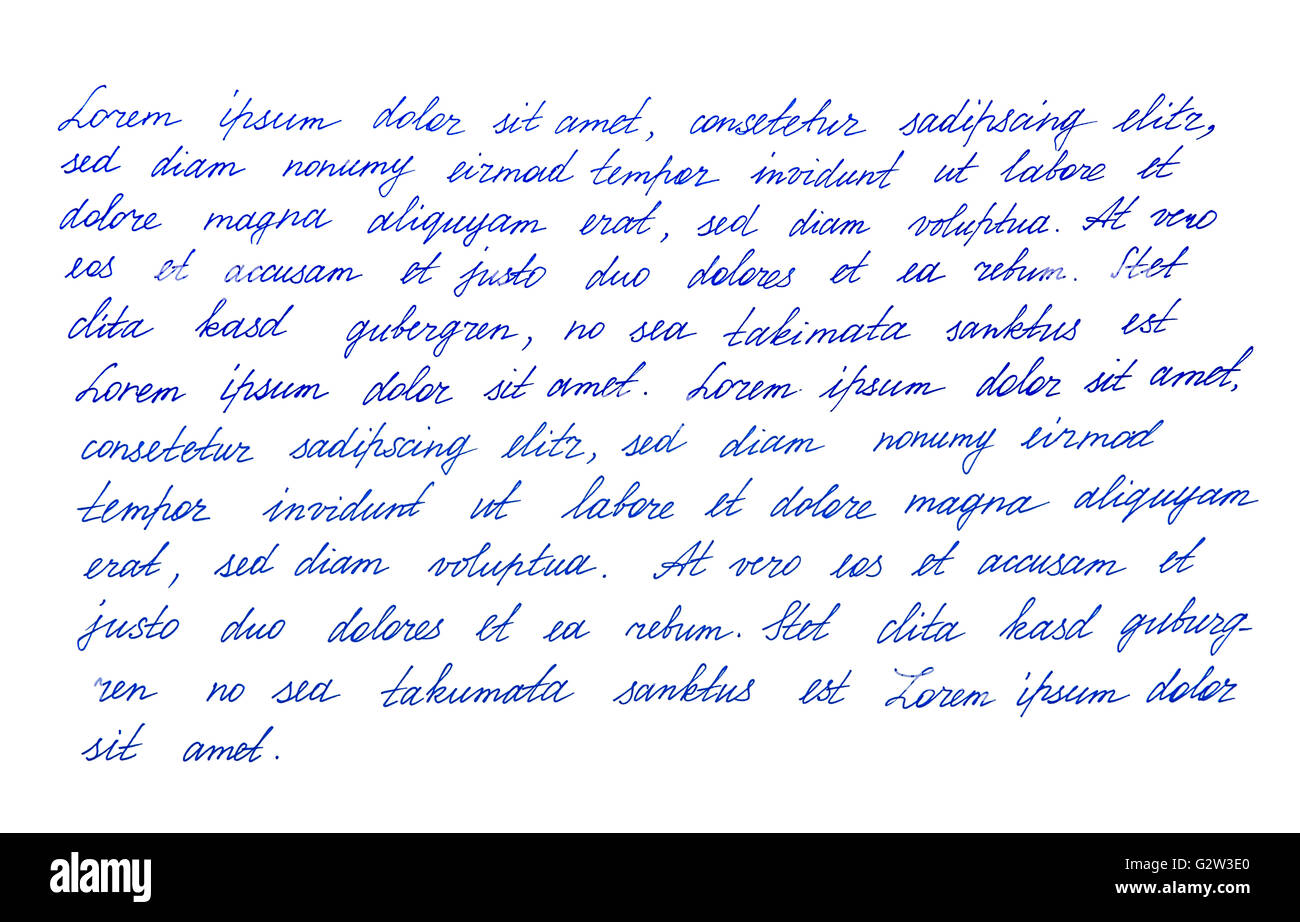 Lorem ipsum dolor sit amet, consetetur sadipscing elitr,
sed diam nonumy eirmod tempor invidunt ut labore et
dolore magna aliquyam erat, sed diam voluptua. At vero
eos et accusam et justo duo dolores et ea rebum. Stet
clita kasd gubergren, no sea takimata sanktus est
Lorem ipsum dolor sit amet. Lorem ipsum dolor sit amet,
consetetur sadipscing elitr, sed diam nonumy eirmod
tempor invidunt ut labore et dolore magna aliquyam
erat, sed diam voluptua. At vero eos et accusam et
justo duo dolores et ea rebum. Stet clita kasd guburg-
ren no sea takumata sanktus est Lorem ipsum dolor
sit amet.
a
alamy stock photo
G2W3E0
www.alamy.com